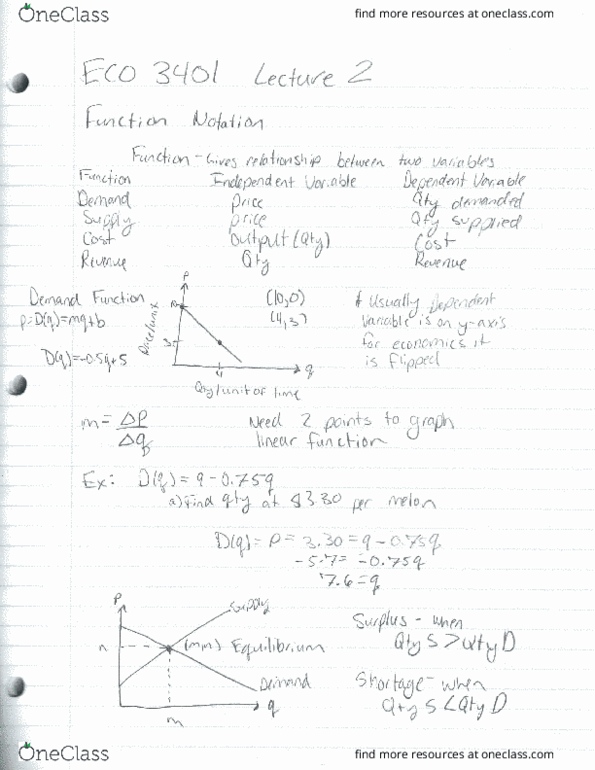 OneClass
find more resources at oneclass.com
ECO 3401 Lecture 2
Function Notation
Function - Gives relationship between two variables
Function Independent Variable Dependent Variable
Demand price Qty demanded
Supply price Qty supplied
Cost output (Qty) Cost
Revenue Qty Revenue
P
Demand Function
p=D(q)=mq+b
D(q)=-0.5q+5
Price/unit
3
4
q
Qty/unit of time
(10,0)
(4,3)
* Usually dependent
variable is on y-axis
for economics it
is flipped
m = ΔP
Δq
Need 2 points to graph
linear function
Ex: D(q) = 9 - 0.75q
a) Find qty at $3.30 per melon
D(q) = P = 3.30 = 9 - 0.75q
-5.7 = -0.75q
7.6 = q
P
Supply
n
(m,n) Equilibrium
Demand
q
m
Surplus - when
Qty S > Qty D
Shortage - when
Qty S < Qty D
OneClass
find more resources at oneclass.com